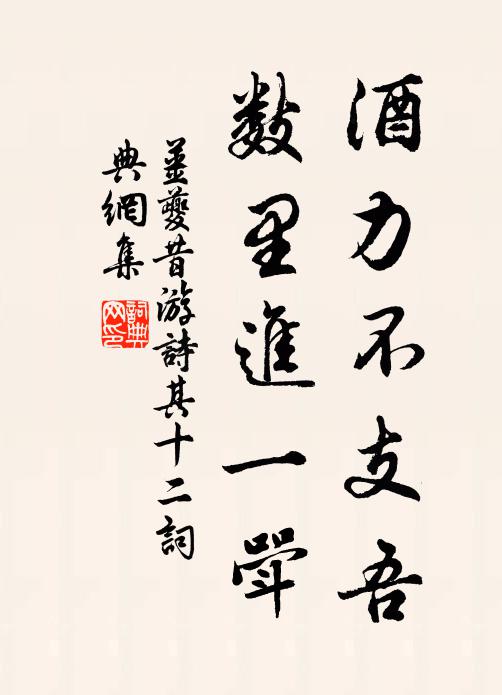 酒力不支吾
数里進一斝
姜夔昔游詩其十二詞
典網集
詞典網印